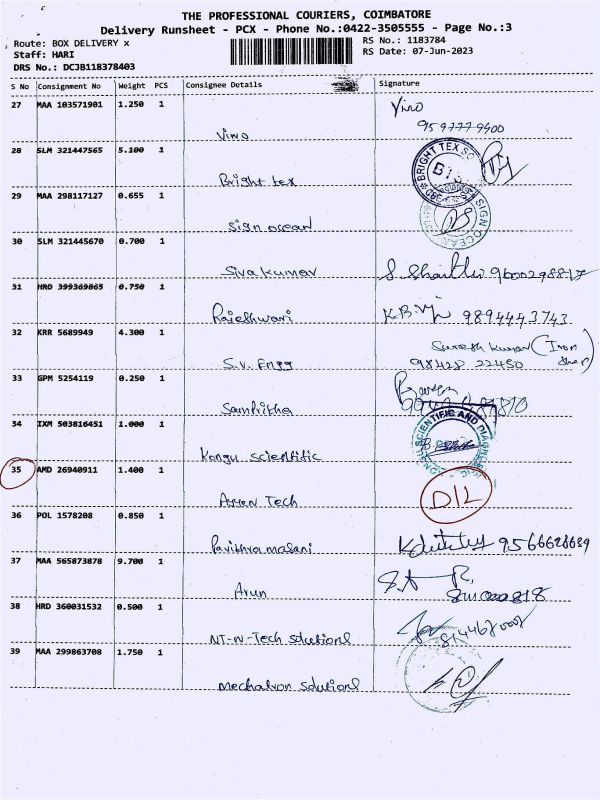 THE PROFESSIONAL COURIERS, COIMBATORE
Delivery Runsheet - PCX - Phone No.:0422-3505555 - Page No.:3
Route: BOX DELIVERY x
RS No.: 1183784
Staff: HARI
RS Date: 07-Jun-2023
DRS No.: DCJB118378403
S No Consignment No Weight PCS Consignee Details Signature
27 MAA 103571901 1.250 1 Vino
Vino 9597779900
28 SLM 321447565 5.100 1
Bright tex BRIGHT TEX
29 MAA 298117127 0.655 1
Sign ocean SIGN OCEAN
30 SLM 321445670 0.700 1
Siva kumar
31 HRD 399369865 0.750 1
Rajeshwari 9894443743
32 KRR 5689949 4.300 1 Suresh Kumar (Iron Shop)
S.V. Engg 98428 22450
33 GPM 5254119 0.250 1
Samhitha
34 IXM 503816451 1.000 1
Kongu scientific SCIENTIFIC AND
35 AMD 26940911 1.400 1
Tech D/L
36 POL 1578208 0.850 1
Pavithra malani
37 MAA 565873878 9.700 1
Arun
38 HRD 360031532 0.500 1
NT-N-Tech solutions
39 MAA 299863708 1.750 1
mechatron solutions